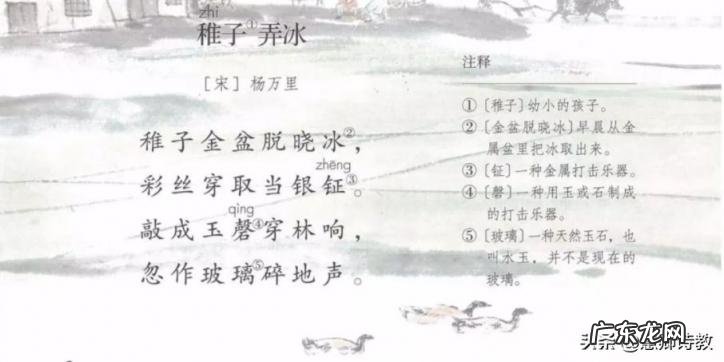 zhì
稚子①弄冰
[宋] 杨万里
稚子金盆脱晓冰②,
zhēng
彩丝穿取当银钲③。
qìng
敲成玉磬④穿林响,
忽作玻璃⑤碎地声。
注释
①〔稚子〕幼小的孩子。
②〔金盆脱晓冰〕早晨从金
属盆里把冰取出来。
③〔钲〕一种金属打击乐器。
④〔磬〕一种用玉或石制成
的打击乐器。
⑤〔玻璃〕一种天然玉石,也
叫水玉,并不是现在的
玻璃。
头条
诗教
广东龙网